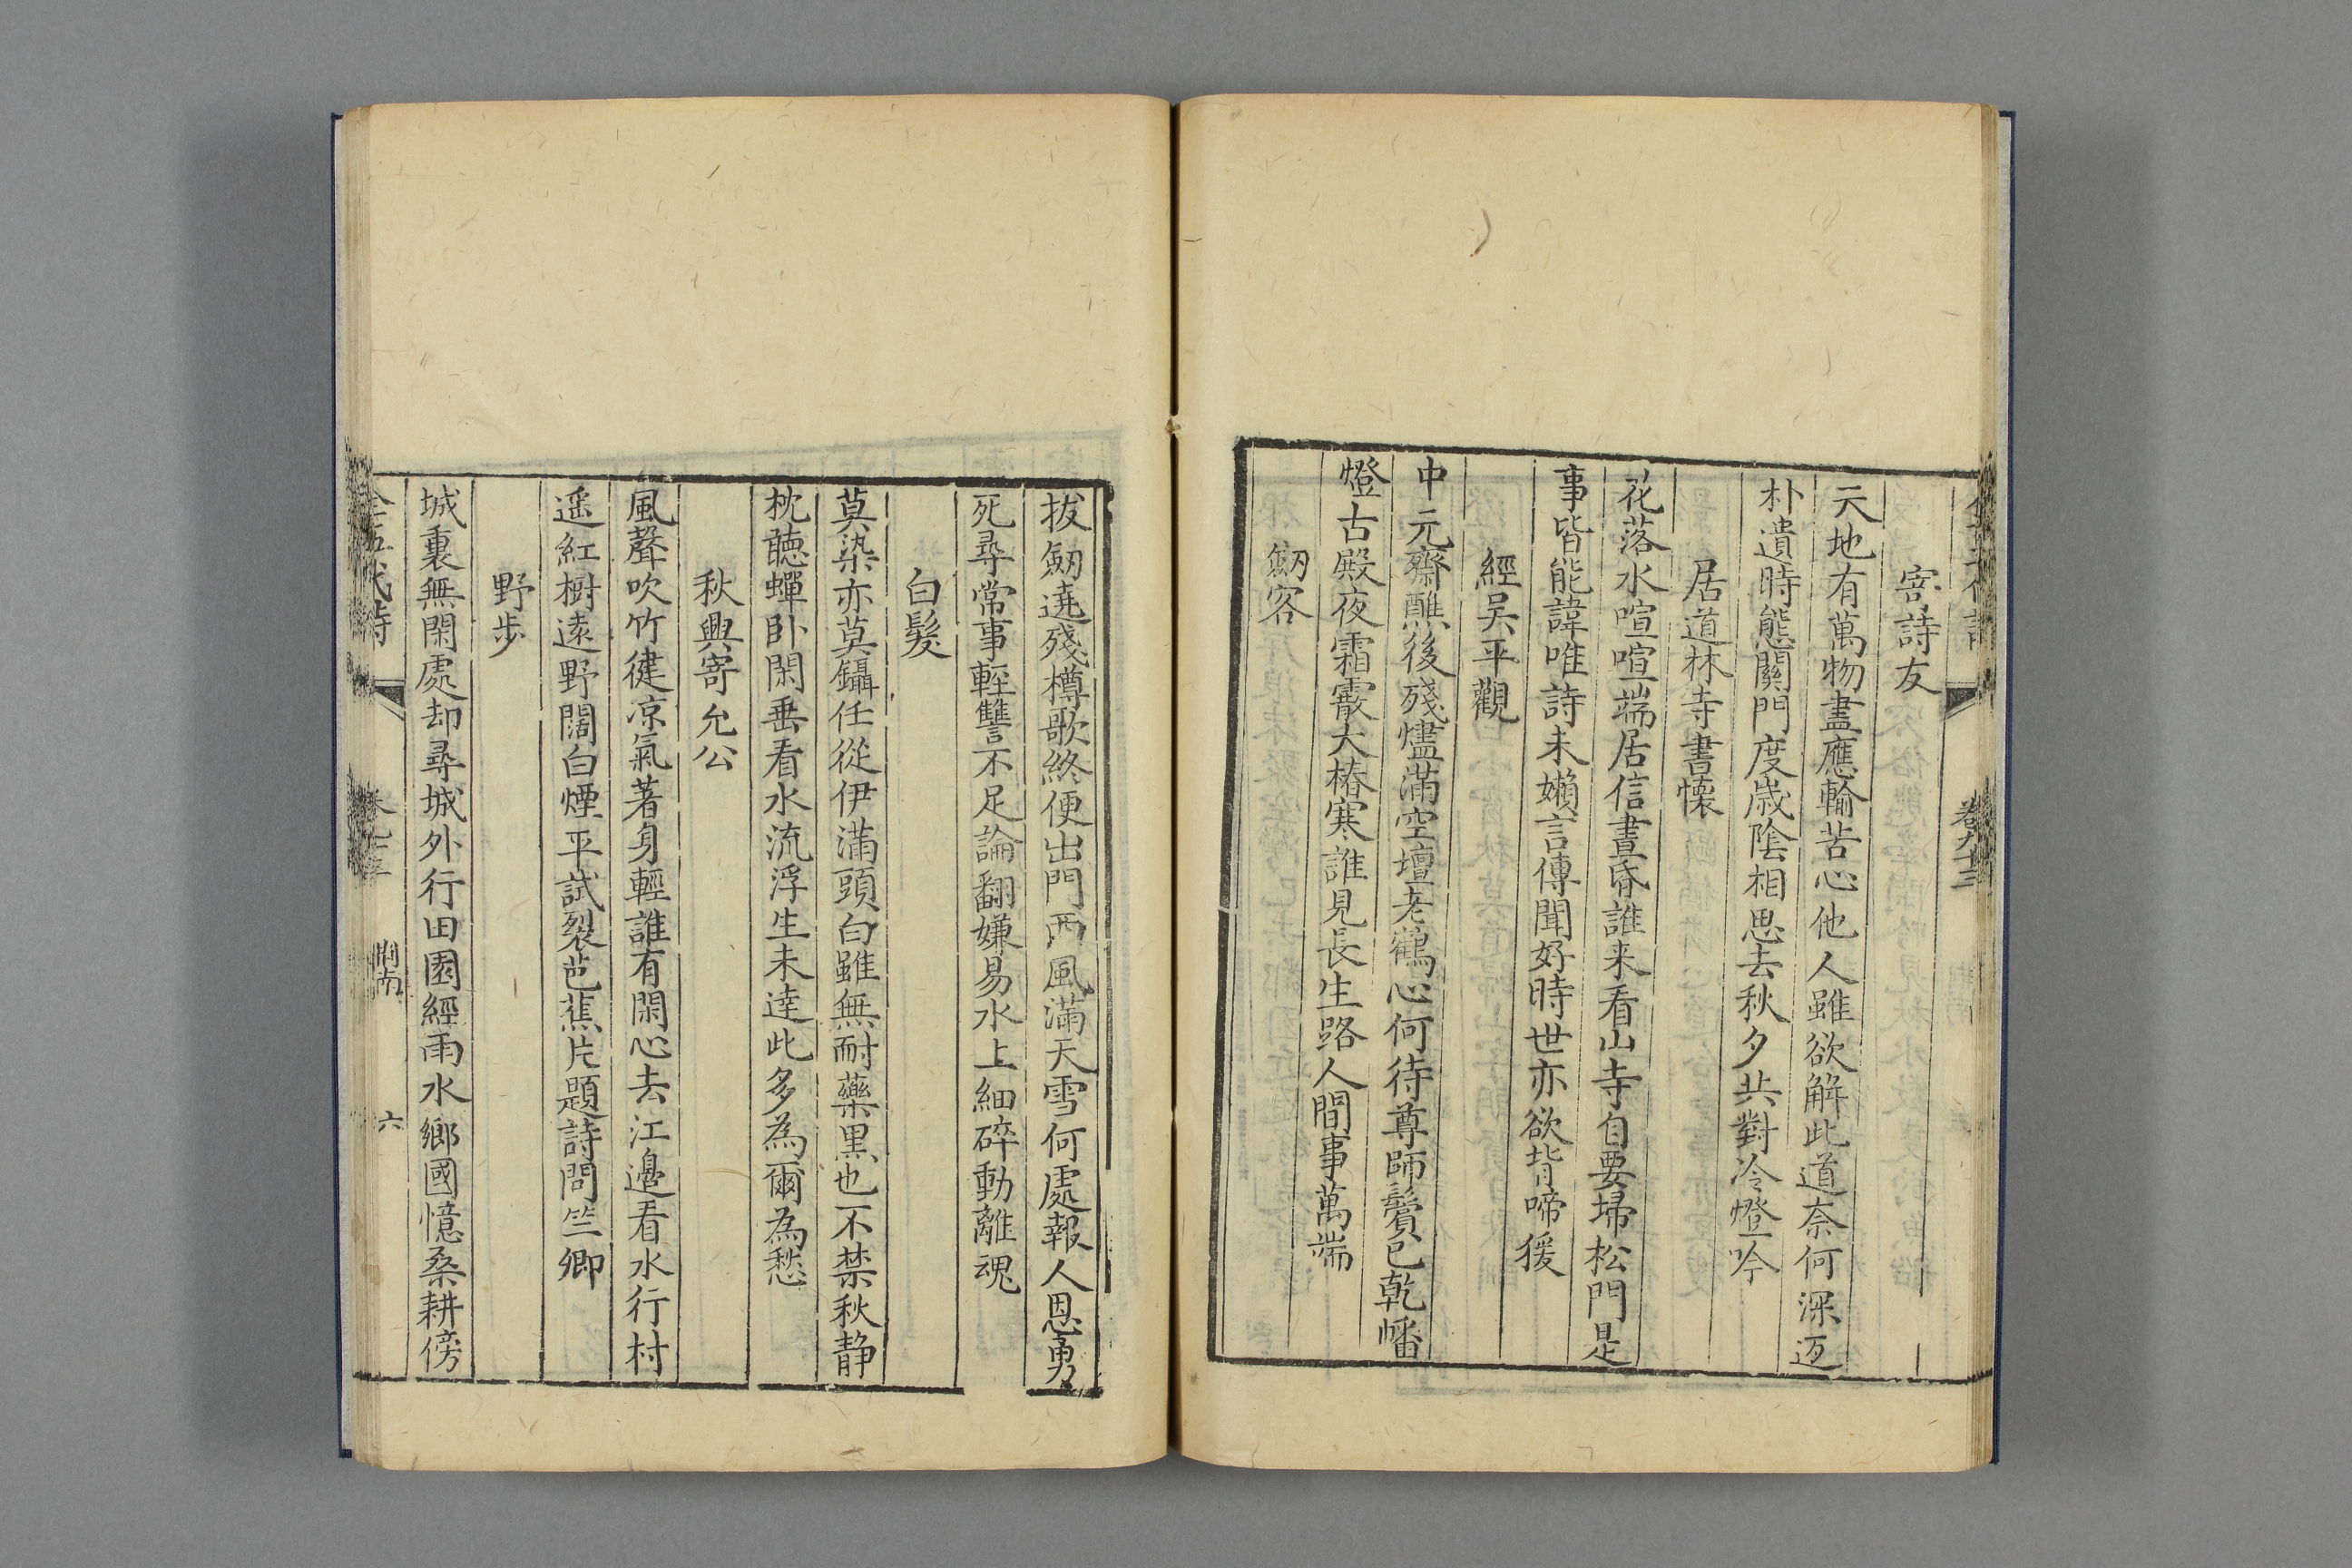 寄詩友
天地有萬物盡應輸苦心他人雖欲解此道奈何深返
朴遺時態關門度歲陰相思去秋夕共對冷燈吟
居道林寺書懷
花落水喧喧端居信晝昏誰来看山寺自要埽松門是
事皆能諱唯詩未懶言傳聞好時世亦欲背啼猨
經吴平觀
中元齋醮後殘燼滿空壇老鶴心何待尊師鬢已乾幡
燈古殿夜霜霰大椿寒誰見長生路人間事萬端
劒客
拔劒遶殘樽歌終便出門西風滿天雪何處報人恩勇
死尋常事輕讐不足論翻嫌易水上細碎動離魂
白髮
莫染亦莫鑷任從伊滿頭白雖無耐藥黒也不禁秋静
枕聽蟬卧閑垂看水流浮生未達此多為爾為愁
秋興寄允公
風聲吹竹健凉氣著身輕誰有閑心去江邊看水行村
遥紅樹遠野闊白煙平試裂芭蕉片題詩問竺卿
野步
城裏無閑處却尋城外行田園經雨水鄉國憶桑耕傍
全五代詩
荆南
六